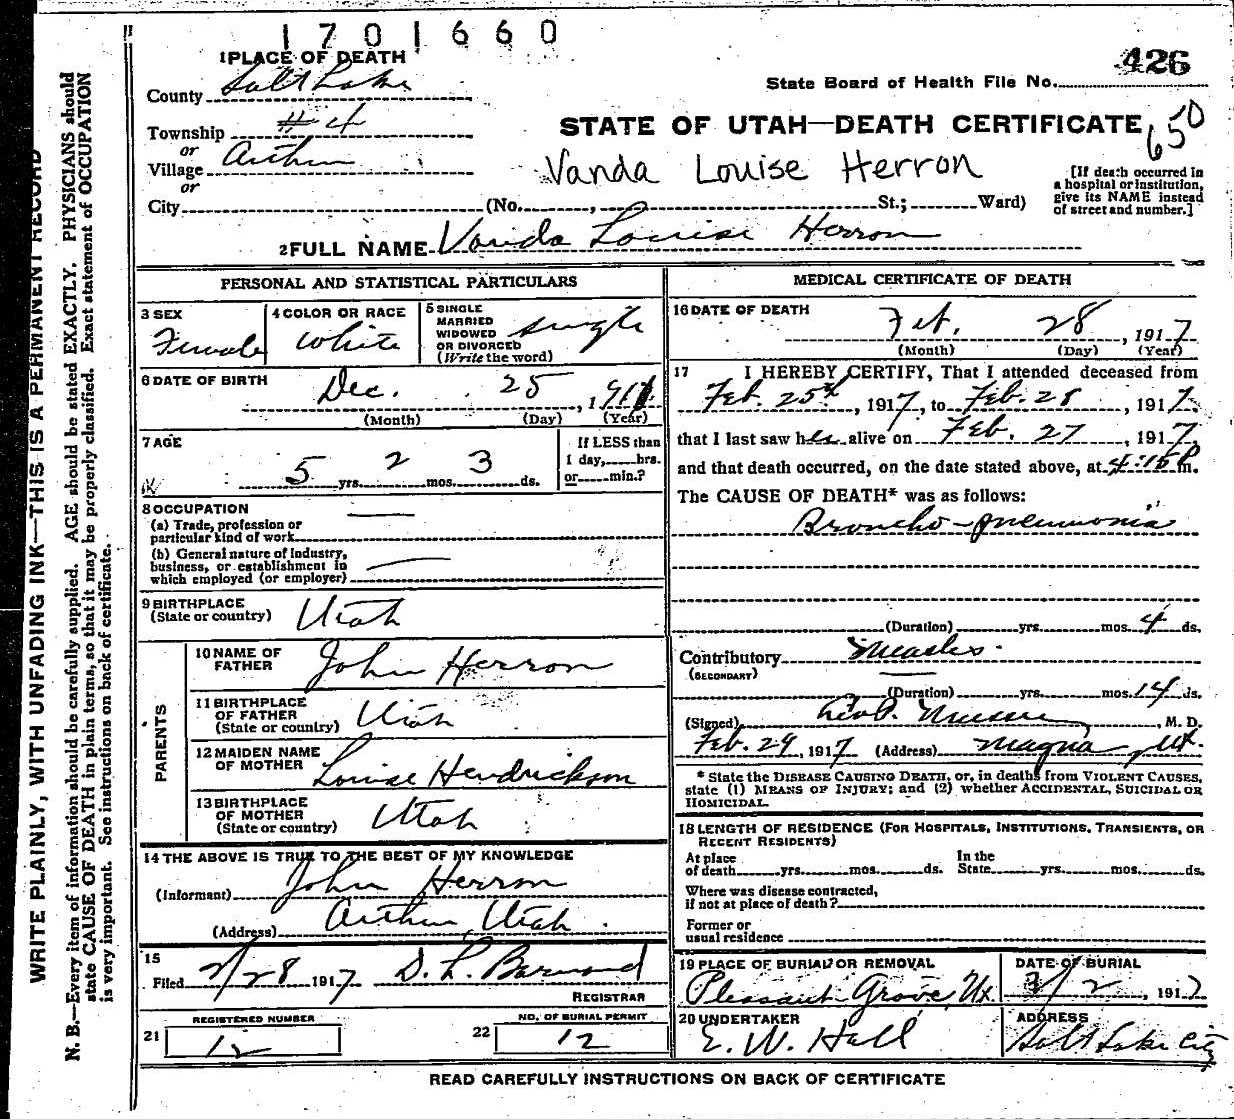 1701660
1 PLACE OF DEATH
County Salt Lake
State Board of Health File No. 426
Township #4
or
Village Arthur
or
STATE OF UTAH—DEATH CERTIFICATE
650
Vanda Louise Herron
[If death occurred in
a hospital or institution,
give its NAME instead
of street and number.]
City (No. , St.; Ward)
2 FULL NAME Vanda Louise Herron
PERSONAL AND STATISTICAL PARTICULARS
3 SEX
Female
4 COLOR OR RACE
White
5 SINGLE
MARRIED
WIDOWED
OR DIVORCED
(Write the word)
single
6 DATE OF BIRTH
Dec. 25, 1911
(Month) (Day) (Year)
7 AGE
5 yrs. 2 mos. 3 ds.
If LESS than
1 day, hrs.
or min.?
8 OCCUPATION
(a) Trade, profession or
particular kind of work
(b) General nature of industry,
business, or establishment in
which employed (or employer)
9 BIRTHPLACE
(State or country) Utah
PARENTS
10 NAME OF
FATHER John Herron
11 BIRTHPLACE
OF FATHER
(State or country) Utah
12 MAIDEN NAME
OF MOTHER Louise Hendrickson
13 BIRTHPLACE
OF MOTHER
(State or country) Utah
14 THE ABOVE IS TRUE TO THE BEST OF MY KNOWLEDGE
(Informant) John Herron
(Address) Arthur, Utah.
15
Filed 2/28 1917 D. L. Barnard
REGISTRAR
REGISTERED NUMBER
21 12
NO. OF BURIAL PERMIT
22 12
MEDICAL CERTIFICATE OF DEATH
16 DATE OF DEATH
Feb. 28, 1917
(Month) (Day) (Year)
17 I HEREBY CERTIFY, That I attended deceased from
Feb. 25th, 1917, to Feb. 28, 1917,
that I last saw her alive on Feb. 27, 1917,
and that death occurred, on the date stated above, at 4:15 P m.
The CAUSE OF DEATH* was as follows:
Broncho-pneumonia
(Duration) yrs. mos. 4 ds.
Contributory Measles.
(SECONDARY)
(Duration) yrs. mos. 14 ds.
(Signed) , M. D.
Feb. 29, 1917 (Address) Magna, Ut.
* State the DISEASE CAUSING DEATH, or, in deaths from VIOLENT CAUSES,
state (1) MEANS OF INJURY; and (2) whether ACCIDENTAL, SUICIDAL OR
HOMICIDAL.
18 LENGTH OF RESIDENCE (FOR HOSPITALS, INSTITUTIONS, TRANSIENTS, OR
RECENT RESIDENTS)
At place In the
of death yrs. mos. ds. State yrs. mos. ds.
Where was disease contracted,
if not at place of death?
Former or
usual residence
19 PLACE OF BURIAL OR REMOVAL
Pleasant Grove, Ut.
DATE OF BURIAL
3/2, 1917
20 UNDERTAKER
E. W. Hall
ADDRESS
Salt Lake City
READ CAREFULLY INSTRUCTIONS ON BACK OF CERTIFICATE
WRITE PLAINLY, WITH UNFADING INK—THIS IS A PERMANENT RECORD
N. B.—Every item of information should be carefully supplied. AGE should be stated EXACTLY. PHYSICIANS should
state CAUSE OF DEATH in plain terms, so that it may be properly classified. Exact statement of OCCUPATION
is very important. See instructions on back of certificate.